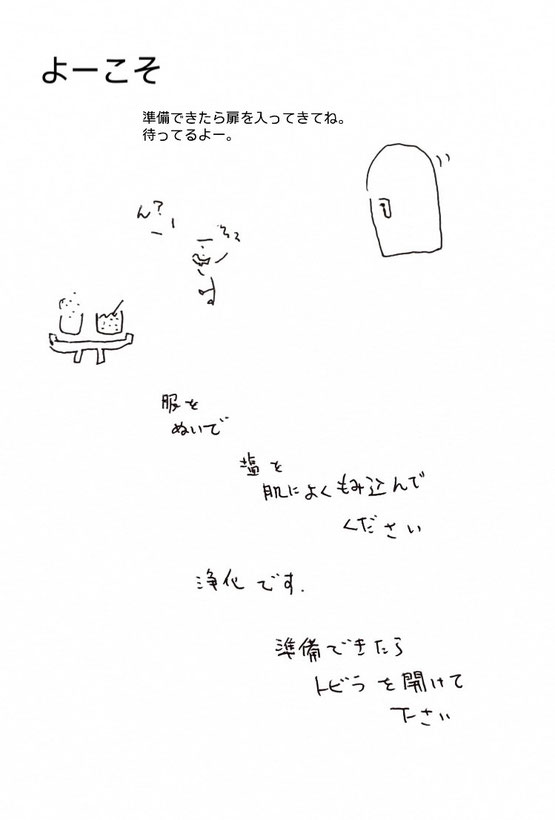 よーこそ
準備できたら扉を入ってきてね。
待ってるよー。
ん?
服を
ぬいで
塩を
肌によくもみ込んで
ください
浄化です.
準備できたら
トビラを開けて
下さい